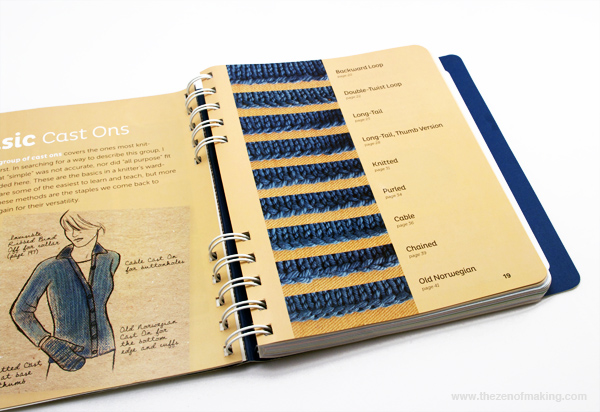 sic Cast Ons
group of cast ons covers the ones most knit-
irst. In searching for a way to describe this group, I
at "simple" was not accurate, nor did "all purpose" fit
ded here. These are the basics in a knitter's ward-
are some of the easiest to learn and teach, but more
hese methods are the staples we come back to
gain for their versatility.
Invisible
Ribbed Bind
Off for collar
(page 197)
Cable Cast On
for buttonholes
Old Norwegian
Cast On for
the bottom
edge and cuffs
tted Cast
at base
thumb
Backward Loop
Double-Twist Loop
Long-Tail
Long-Tail, Thumb Version
Knitted
Purled
page 34
Cable
page 36
Chained
page 39
Old Norwegian
page 41
19
www.thezenofmaking.com